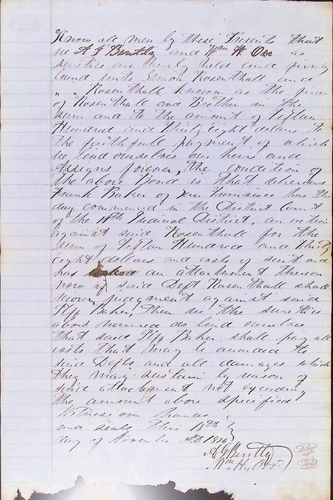 Know all men by these Presents that
we A J Bently and Wm H Orr as
sureties are hereby held and firmly
bound unto Simon Rosenthall and
" " Rosenthall known as the firm
of Rosenthall and Brother in the
sum and to the amount of Fiften
Hundred and thirty eight dolars to
the faithfull payment of which
we bind ourselves our heirs and
Assigns forever, the condition of
the above Bond is that whereas
Franz Baker of San Francisco has this
day commenced in the District Court
of the Judicial District, an action
against said Rosenthall for the
sum of Fiften Hundred and thirty
eight dollars and costs of suit and
has asked an attachment thereon
Now if said Deft Rosenthall shall
recover judgment against said
Plff Baker, then we the sureties
above named do bind ourselves
that said Plff Baker shall pay all
costs that may be awarded the
said Defts and all damages which
they may sustain by reason of
said attachment not exceeding
the amount above specified
Witness our hands
and seals this 18th
day of November AD
A J Bently
Wm H Orr